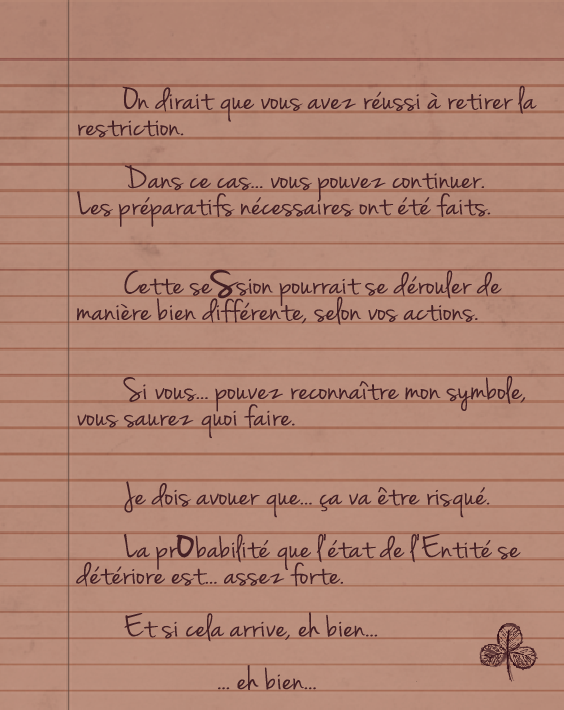 On dirait que vous avez réussi à retirer la
restriction.
Dans ce cas... vous pouvez continuer.
Les préparatifs nécessaires ont été faits.
Cette seSsion pourrait se dérouler de
manière bien différente, selon vos actions.
Si vous... pouvez reconnaître mon symbole,
vous saurez quoi faire.
Je dois avouer que... ça va être risqué.
La prObabilité que l'état de l'Entité se
détériore est... assez forte.
Et si cela arrive, eh bien...
... eh bien...